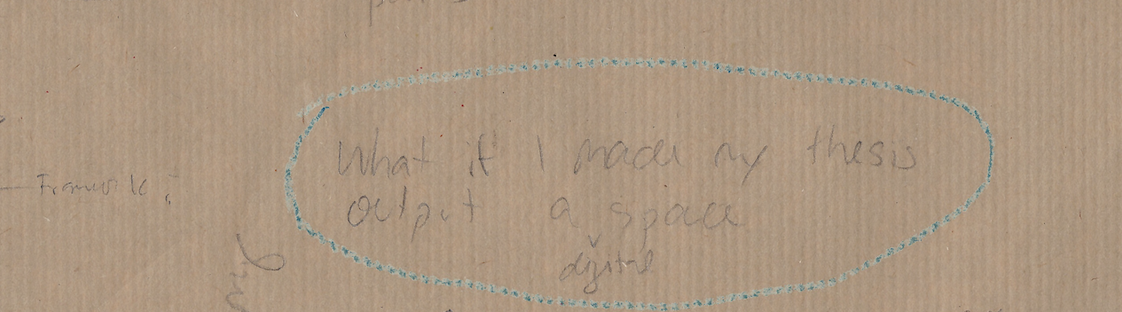 Framework ;
What if I made my thesis
output a space
digital